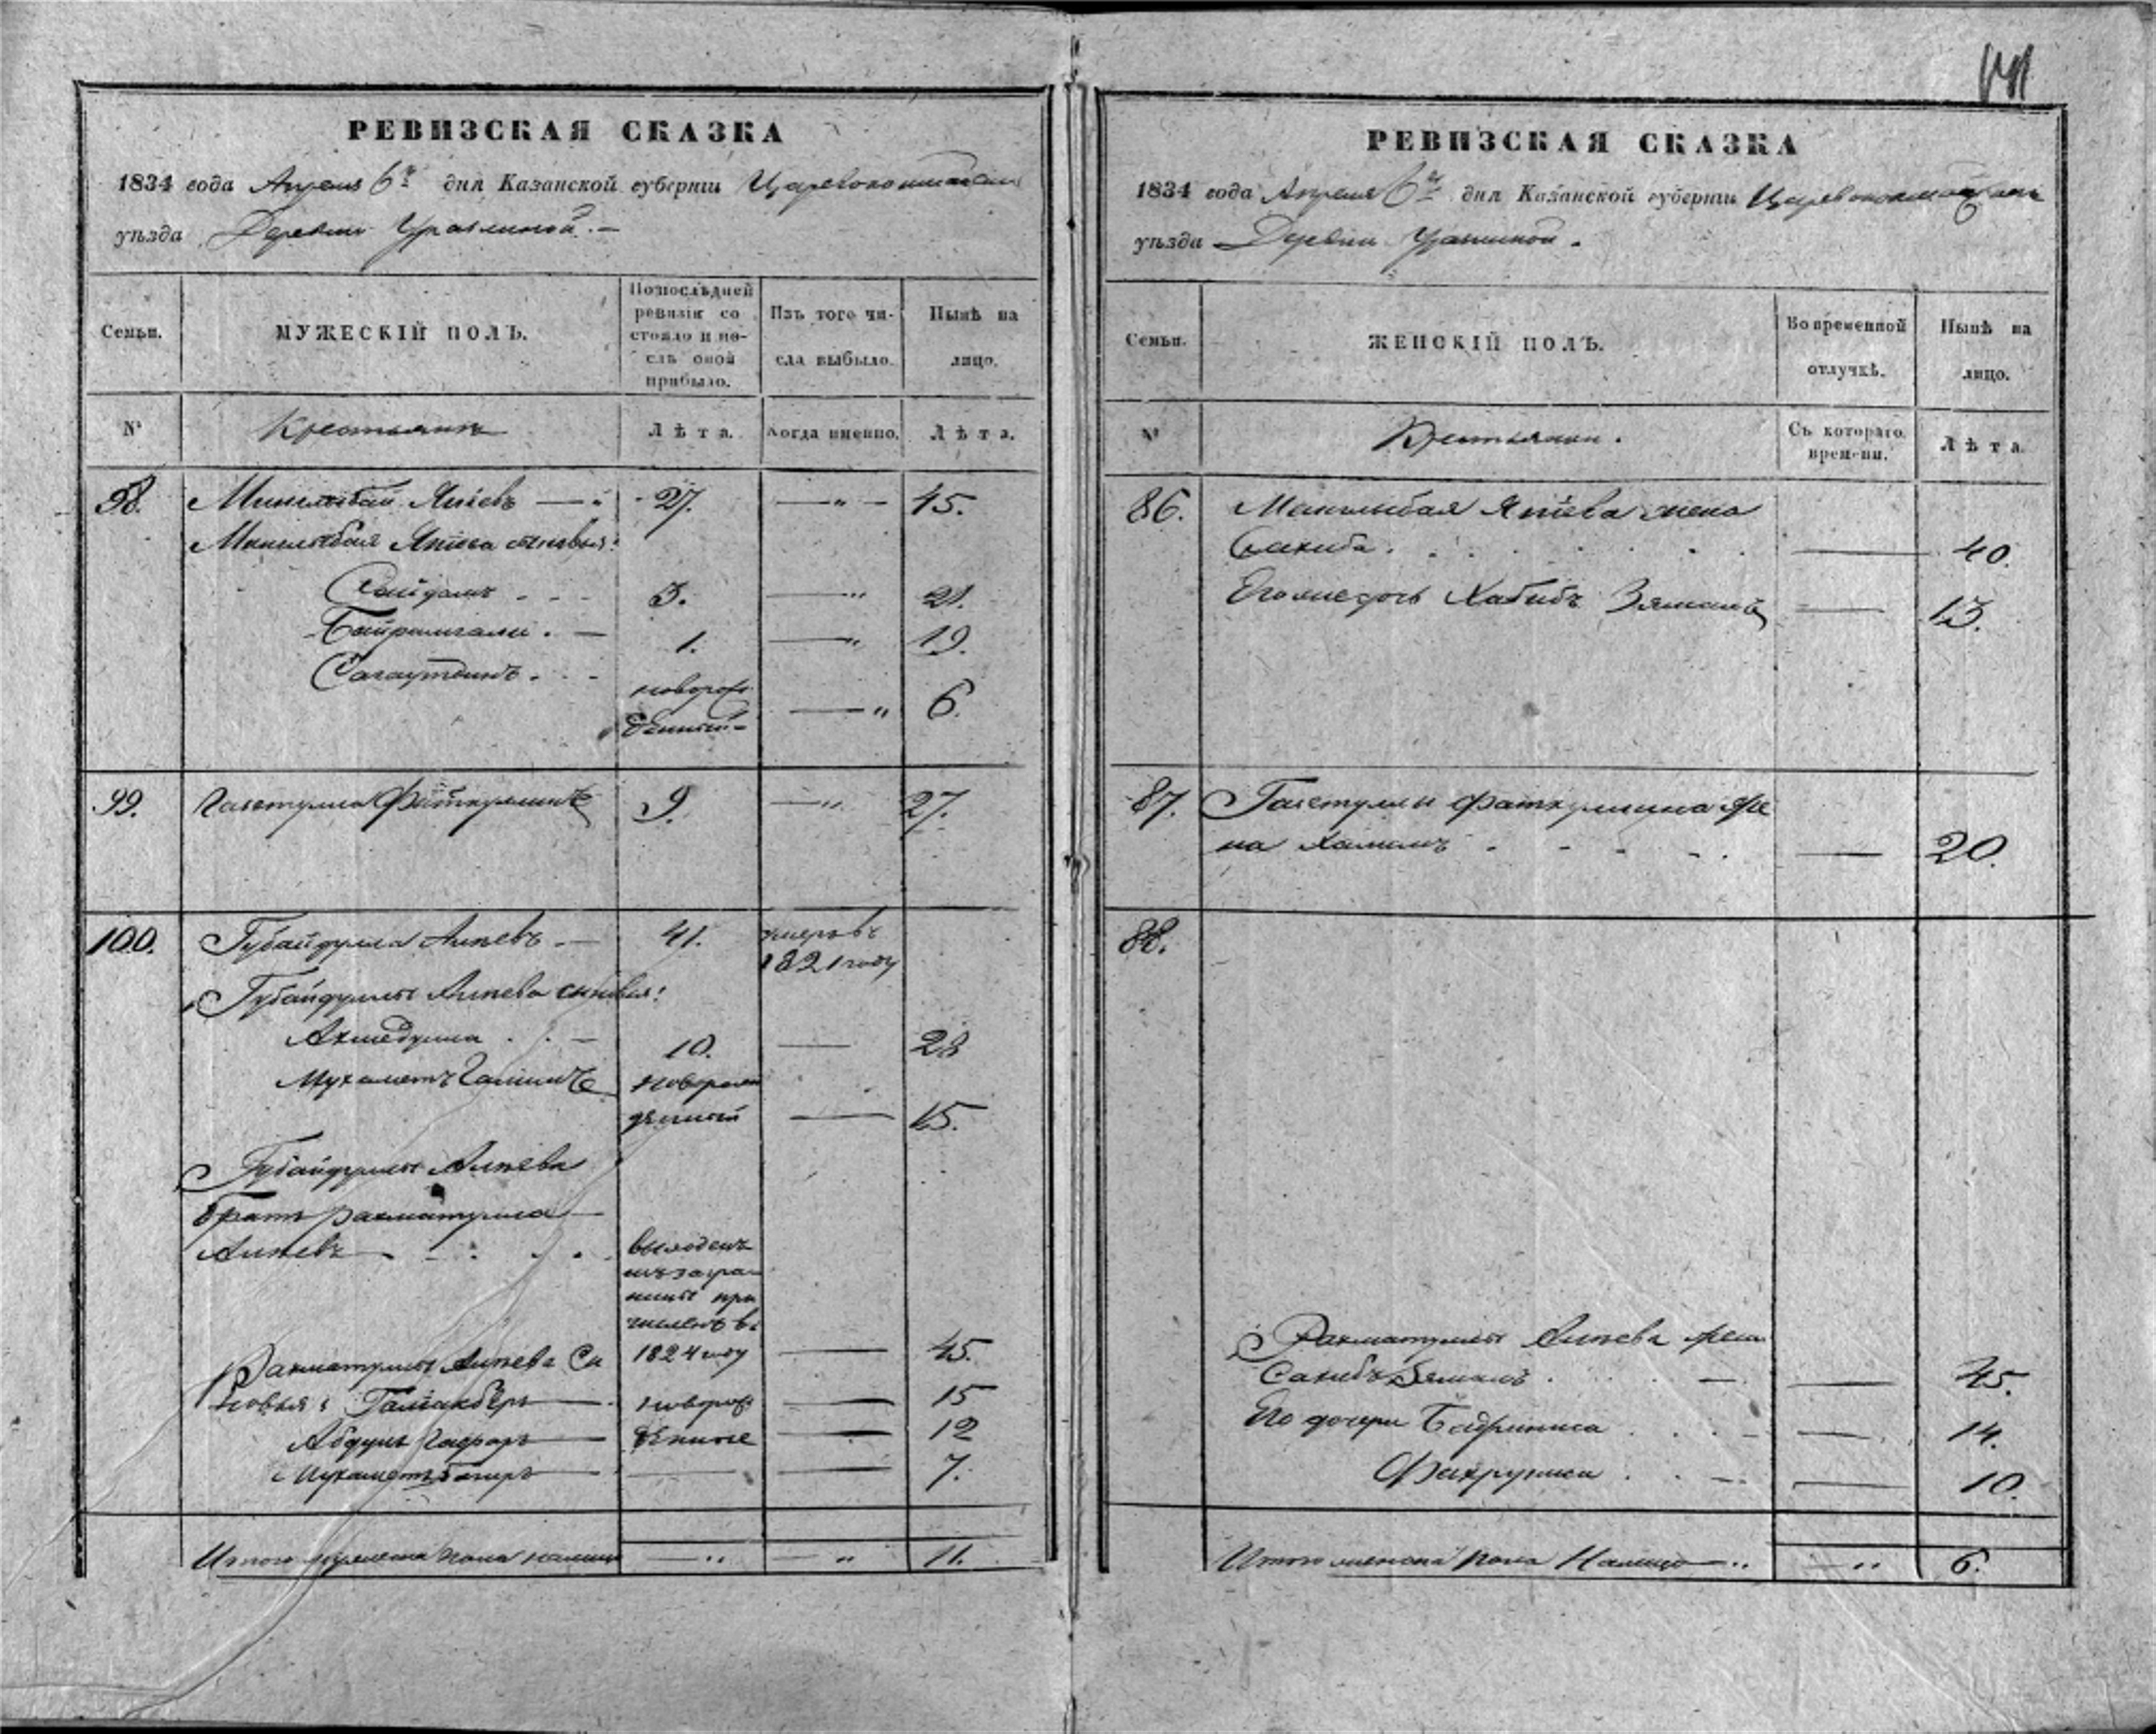 РЕВИЗСКАЯ СКАЗКА
1834 года Апреля 6го дня Казанской губерніи Царевококшайскаго
уѣзда Деревни
Семьи.
МУЖЕСКІЙ ПОЛЪ.
По послѣдней
ревизіи со
стояло и по-
слѣ оной
прибыло.
Изъ того чи-
сла выбыло.
Нынѣ на
лицо.
№
Крестьянъ
Лѣта.
Когда именно.
Лѣта.
98. Япіевъ — „ 27. — „ — 45.
Япіева сыновья:
3. — „ 21.
Байрамгали. — 1. — „ 19.
Сагаутдинъ. новорож
денный — „ 6.
99. Фаткуллинъ 9. — „ 27.
100. Губайдулла Алкевъ — 41. умеръ въ
1821 году
Губайдуллы Алкева сыновья:
Ахмедулла 10. — 28
Мухаметъ новорож
денный — 15.
Губайдуллы Алкева
братъ Рахматулла
Алкевъ выходецъ
изъ загра
ницы при
численъ въ
1824 году — 45.
Рахматуллы Алкева сы
новья: новорож — 15
Абдулъ Гафаръ — денные — 12
Мухаметъ — — 7.
Итого мужеска пола налицо — „ — „ 11.
141
РЕВИЗСКАЯ СКАЗКА
1834 года Апреля 6го дня Казанской губерніи Царевококшайскаго
уѣзда Деревни
Семьи.
ЖЕНСКІЙ ПОЛЪ.
Во временной
отлучкѣ.
Нынѣ на
лицо.
№
Крестьянки.
Съ котораго
времени.
Лѣта.
86. Япіева жена
— 40.
Его же дочь Хабибъ Зямалъ — 13.
87. Фаткуллина же
на — 20.
88.
Рахматуллы Алкева жена
Сахибъ Зямалъ — 45.
Его дочери Бадриниса — 14.
Фахруниса — 10.
Итого женска пола налицо — „ — „ 6.